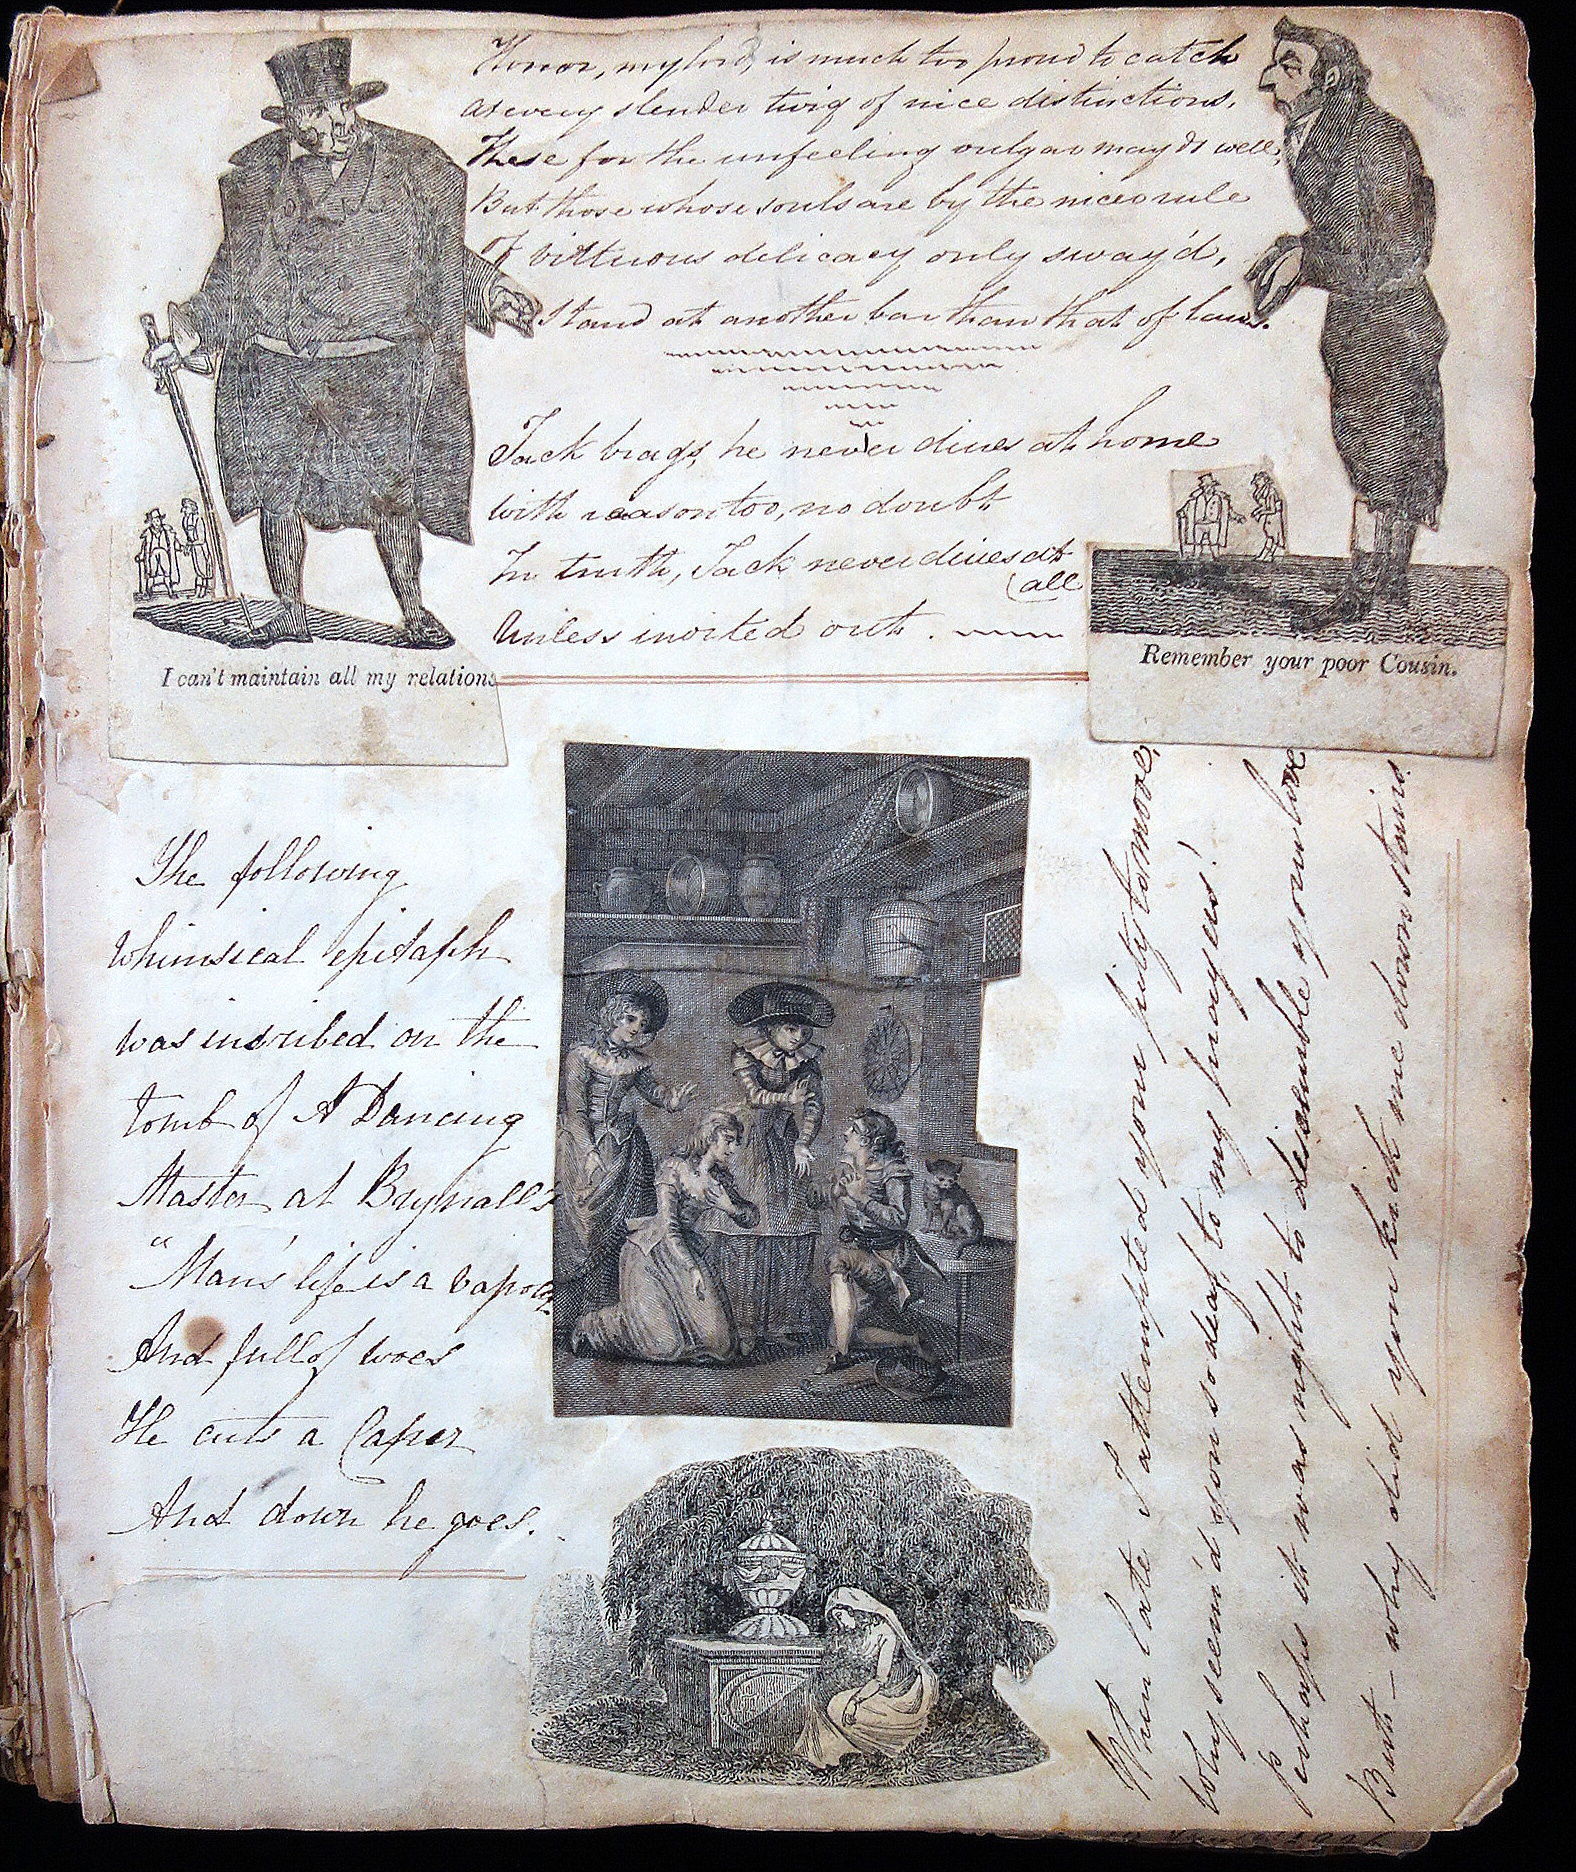 Honor, my lord, is much too proud to catch
At every slender twig of nice distinctions.
These for the unfeeling vulgar may do well,
But those whose souls are by the nicer rule
Of virtuous delicacy only sway'd,
Stand at another bar than that of laws.
Jack brags, he never dines at home
With reason too, no doubt
In truth, Jack never dines at
all
Unless invited out.
I can't maintain all my relations
Remember your poor Cousin.
The following
Whimsical epitaph
was inscribed on the
tomb of A Dancing
Master at
"Man's life is a vapour
And full of woes
He cuts a Caper
And down he goes.
When late I attempted your pity to move,
Why seem'd you so deaf to my prayers!
Perhaps it was right to dissemble your love
But – why did you kick me down stairs